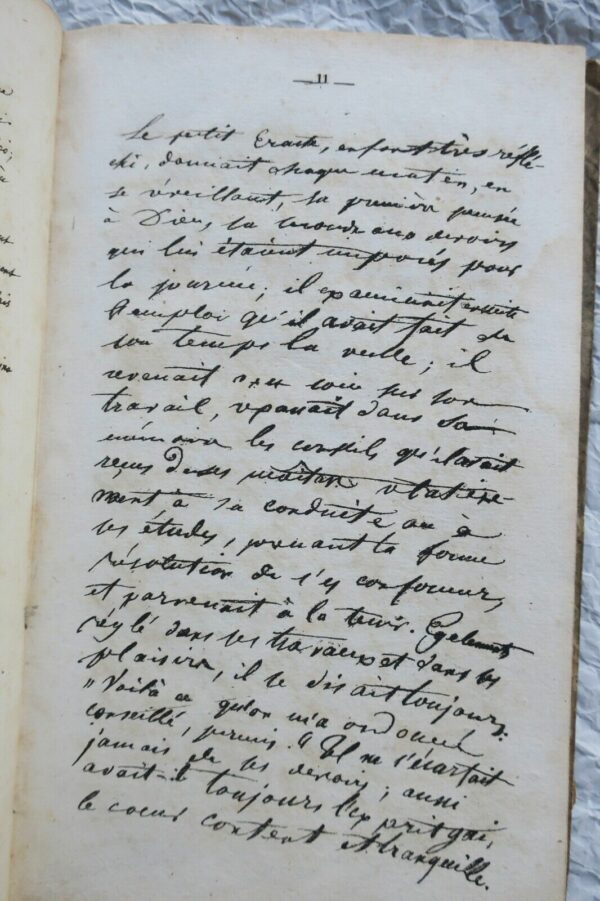 — 11 —
Le petit Eraste, enfant très réflé-
chi, donnait chaque matin, en
se éveillant, sa première pensée
à Dieu, sa seconde aux devoirs
qui lui étaient imposés pour
la journée; il examinait ensuite
l'emploi qu'il avait fait de
son temps la veille; il
revenait avec soin sur son
travail, repassait dans sa
mémoire les conseils qu'il avait
reçus de ses maîtres relative-
ment à sa conduite ou à
ses études, prenant la ferme
résolution de s'y conformer,
et parvenait à la tenir. Egalement
réglé dans ses travaux et dans ses
plaisirs, il se disait toujours:
"Voilà ce qu'on m'a ordonné
conseillé, permis." Il ne s'écartait
jamais de ses devoirs; aussi
avait-il toujours l'esprit gai,
le coeur content et tranquille.